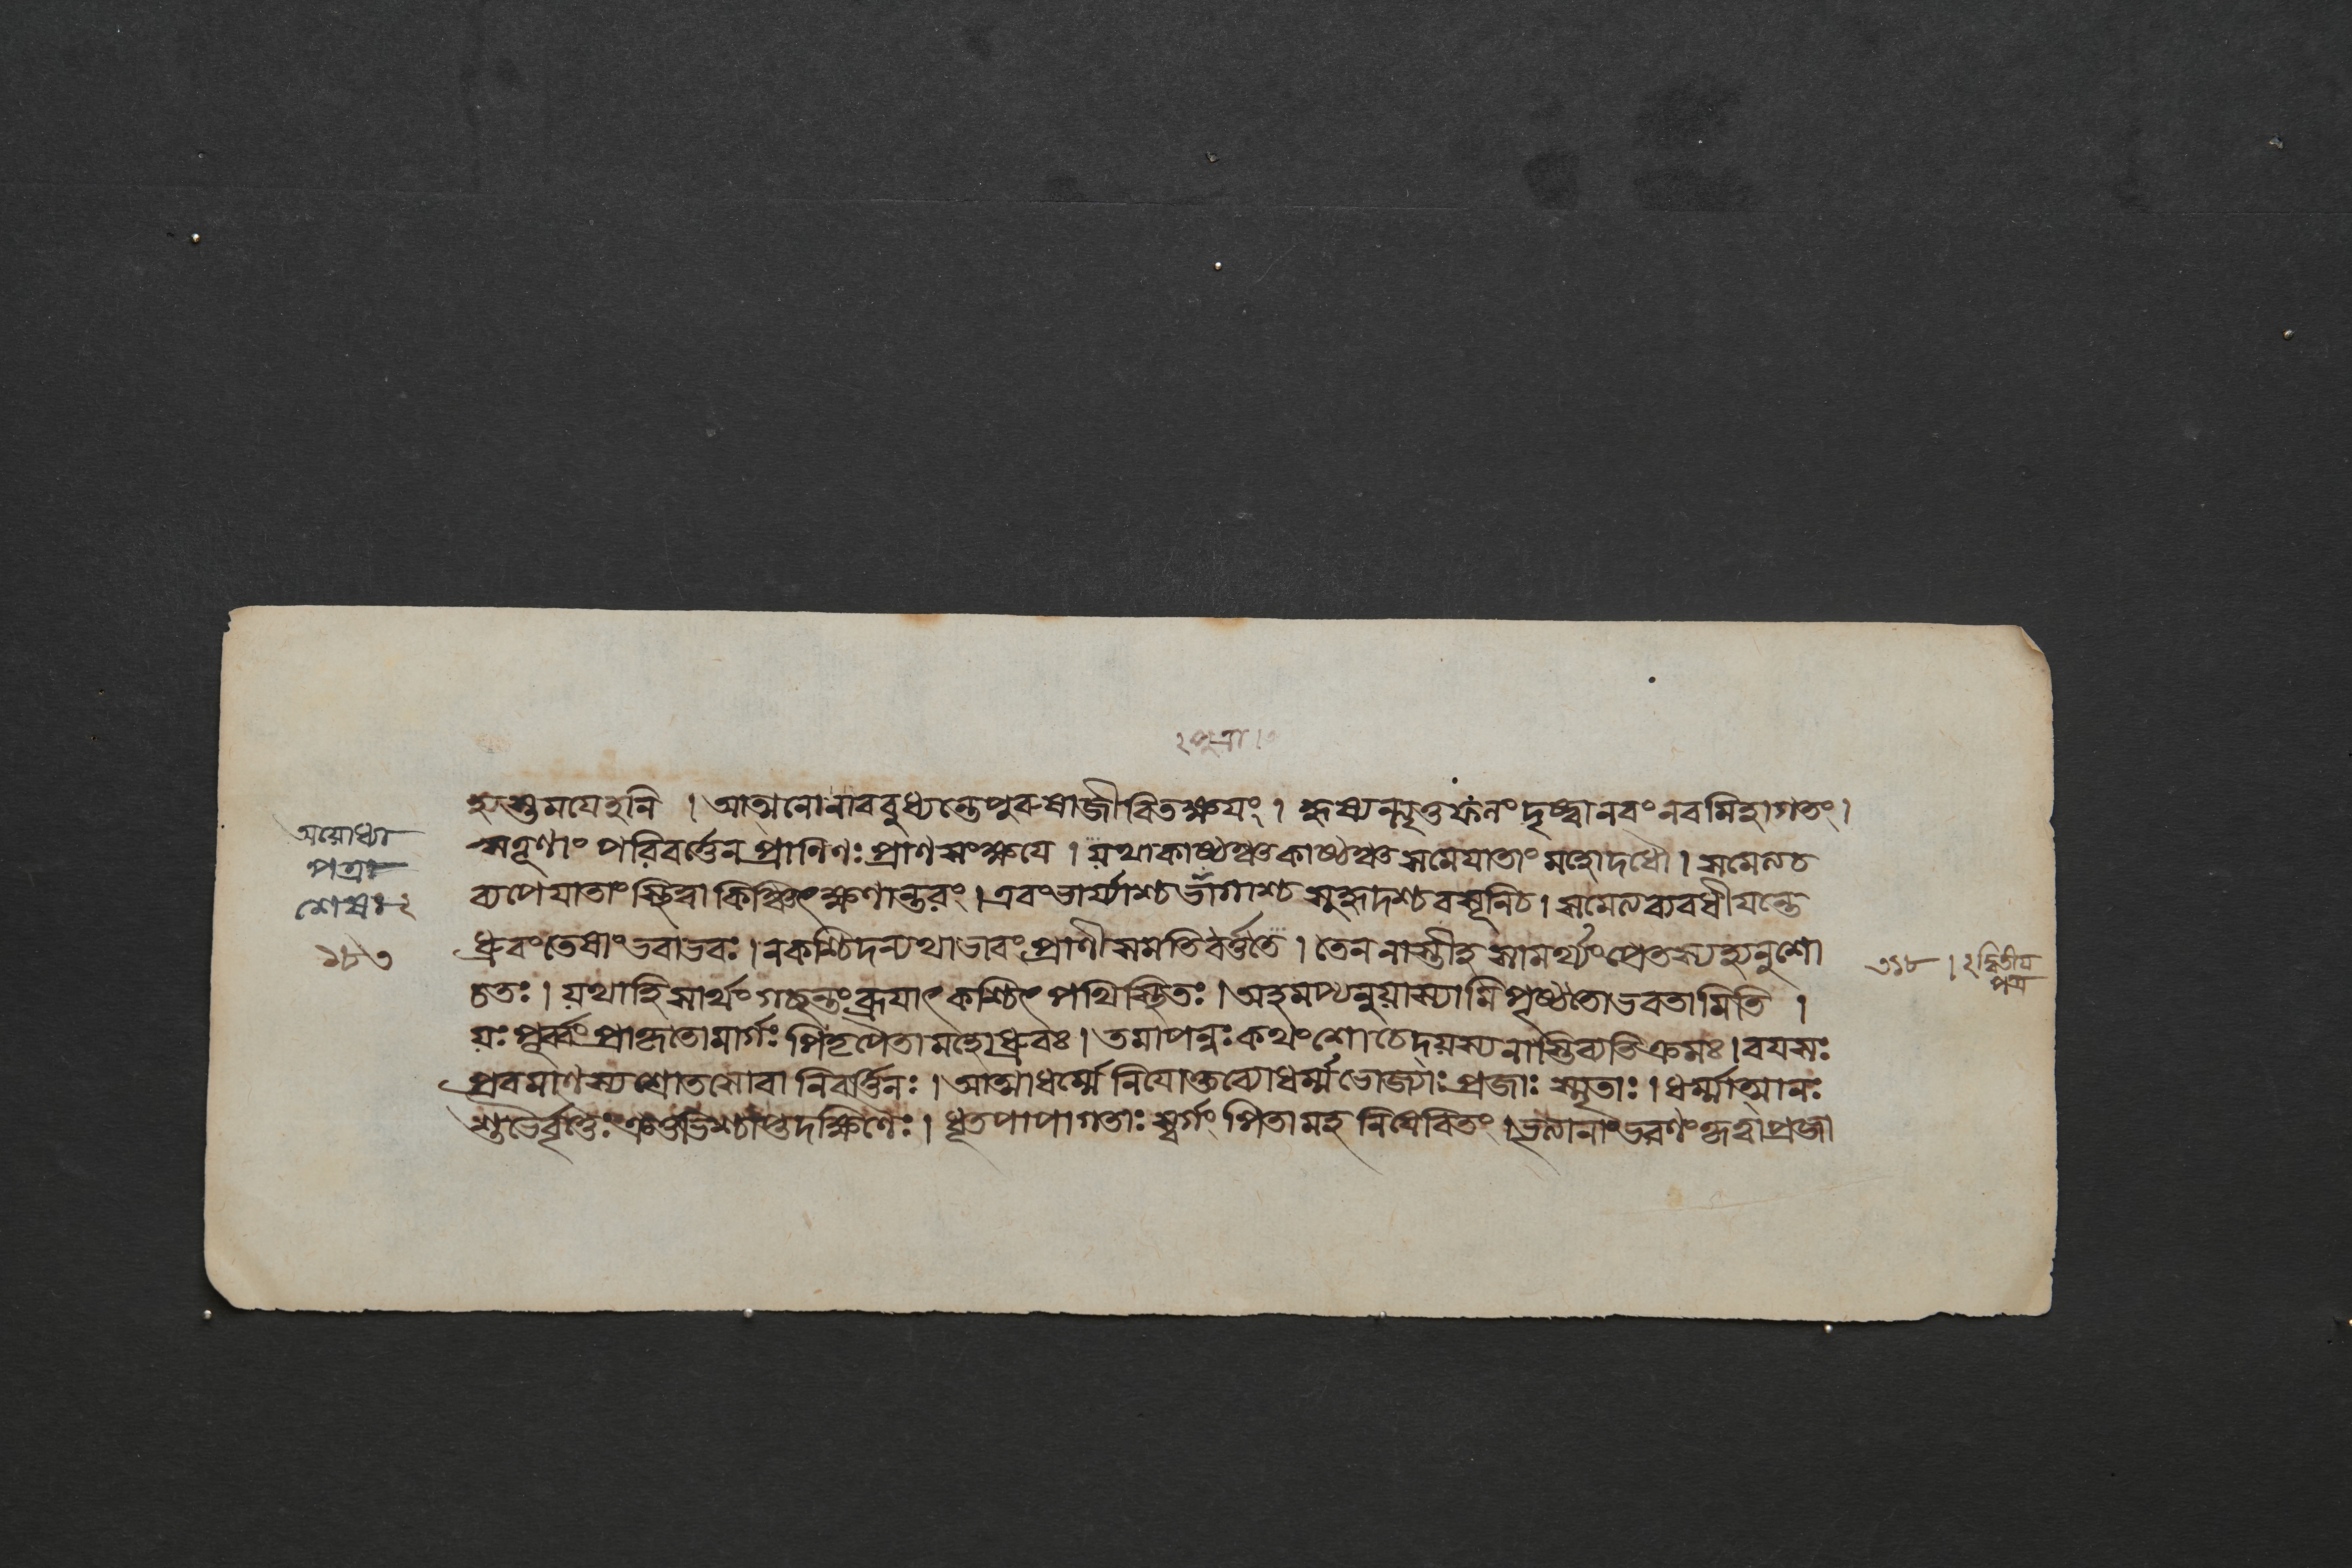 হ্যস্তমযেহনি । আত্মনোনাববুধ্যন্তেপুরুষাজীবিতক্ষয়ং । হৃষ্যন্ত্যৃতুফলং দৃষ্ট্বানবংনবমিহাগতং ।
ঋতূণাং পরিবর্ত্তেন প্রাণিণঃ প্রাণসংক্ষযে । য়থাকাষ্ঠঞ্চকাষ্ঠঞ্চ সমেযাতাং মহোদধৌ । সমেত্যচ
ব্যপেযাতাং স্থিত্বা কিঞ্চিৎক্ষণান্তরং । এবংভার্য্যাশ্চ সুহৃদশ্চবসূনিচ । সমেত্যব্যবধীযন্তে
ধ্রুবংতেষাংভবাভবঃ । নকশ্চিদন্যথাভাবংপ্রাণীসমতিবর্ত্ততে । তেন নাস্তীহ সামর্থ্যংপ্রেতস্যহ্যনুশো
চতঃ । য়থাহিসার্থংগচ্ছন্তংব্রূযাৎকশ্চিৎ পথিস্থিতঃ । অহমপ্যনুয়াস্যামিপৃষ্ঠতোভবতামিতি ।
য়ঃ পূর্ব্বং মার্গঃ পিতৃপৈতামহোধ্রুবঃ । তমাপন্নঃকথংশোচেদ্য়স্যনাস্তিব্যতিক্রমঃ । বযসঃ
প্রবমাণস্যশ্রোতসোবা নিবর্ত্তিনঃ । আত্মাধর্ম্মে নিযোক্তব্যোধর্ম্মভোজ্যাঃ প্রজাঃ স্মৃতাঃ । ধর্ম্মাত্মানঃ
শুভৈর্বৃত্তৈঃক্রতুভিশ্চাপ্তদক্ষিণৈঃ । ধূতপাপাগতাঃ স্বর্গং পিতামহ নিষেবিতং । ভৃত্যানাংভরণংকৃত্বাপ্রজা
অয়োধ্যা
পত্রা
শেষঃ ২
১৮৩
৩১৮ । ২ দ্বিতীয
পত্র